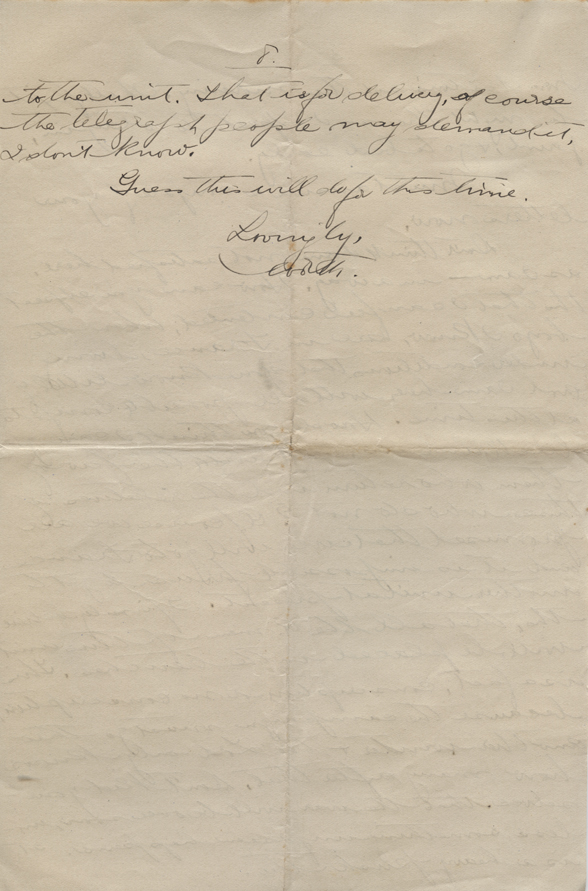 8.
to the unit. That is for delivery, of course
the telegraph people may demand it,
I don't know.
Guess this will do for this time.
Lovingly,